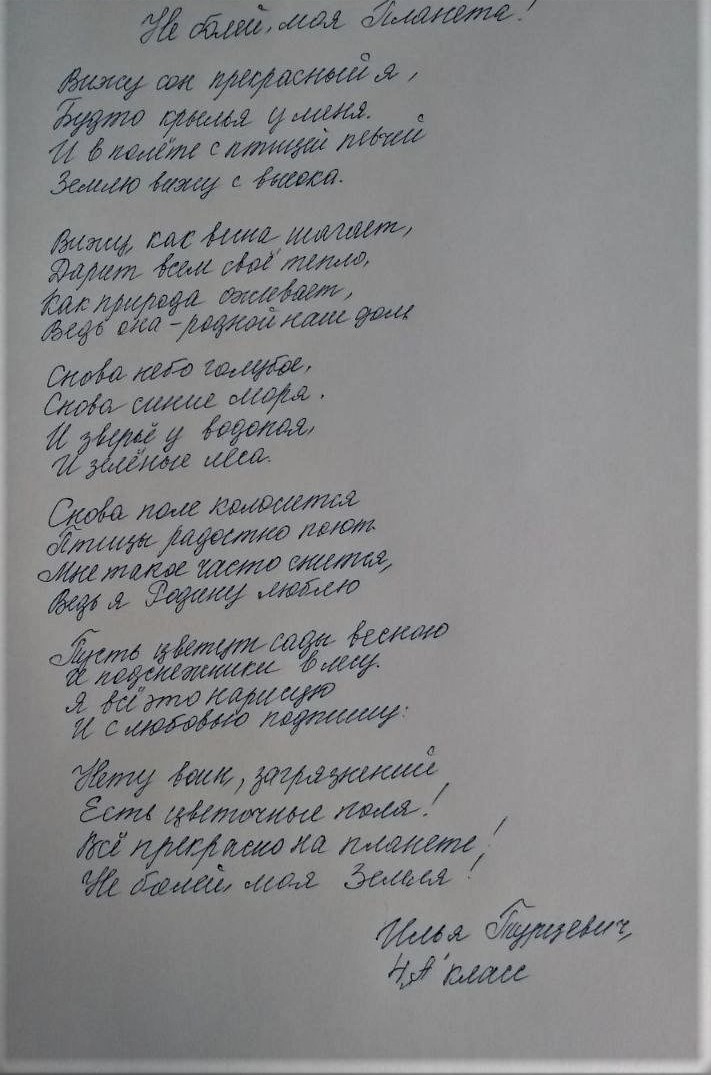 Не болей, моя Планета!
Вижу сон прекрасный я,
Будто крылья у меня.
И в полёте с птицей певчей
Землю вижу с высока.
Вижу, как весна шагает,
Дарит всем своё тепло,
Как природа оживает,
Ведь она - родной наш дом.
Снова небо голубое,
Снова синие моря.
И зверьё у водопоя,
И зелёные леса.
Снова поле колосится
Птицы радостно поют.
Мне такое часто снится,
Ведь я Родину люблю
Пусть цветут сады весною
И подснежники в лесу.
Я всё это нарисую
И с любовью подпишу:
Нету воин, загрязнений
Есть цветочные поля!
Всё прекрасно на планете!
Не болей, моя Земля!
Илья
4 "А" класс